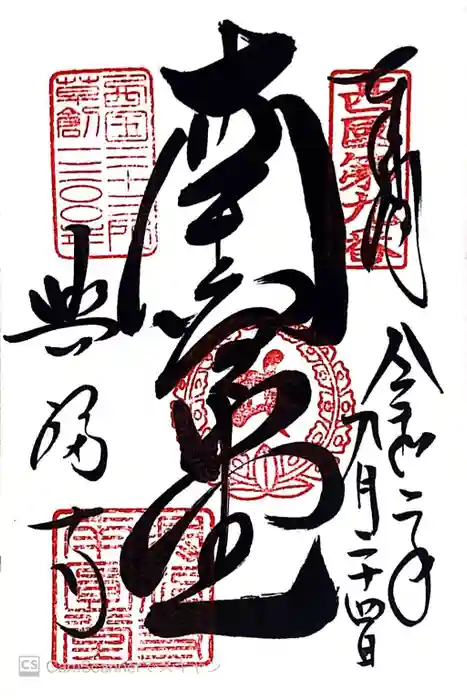 奉拝
西國第九番
令和二年
九月二十四日
南圓堂
西国三十三所
草創一三〇〇年
興福寺
CS CamScanner でスキャン